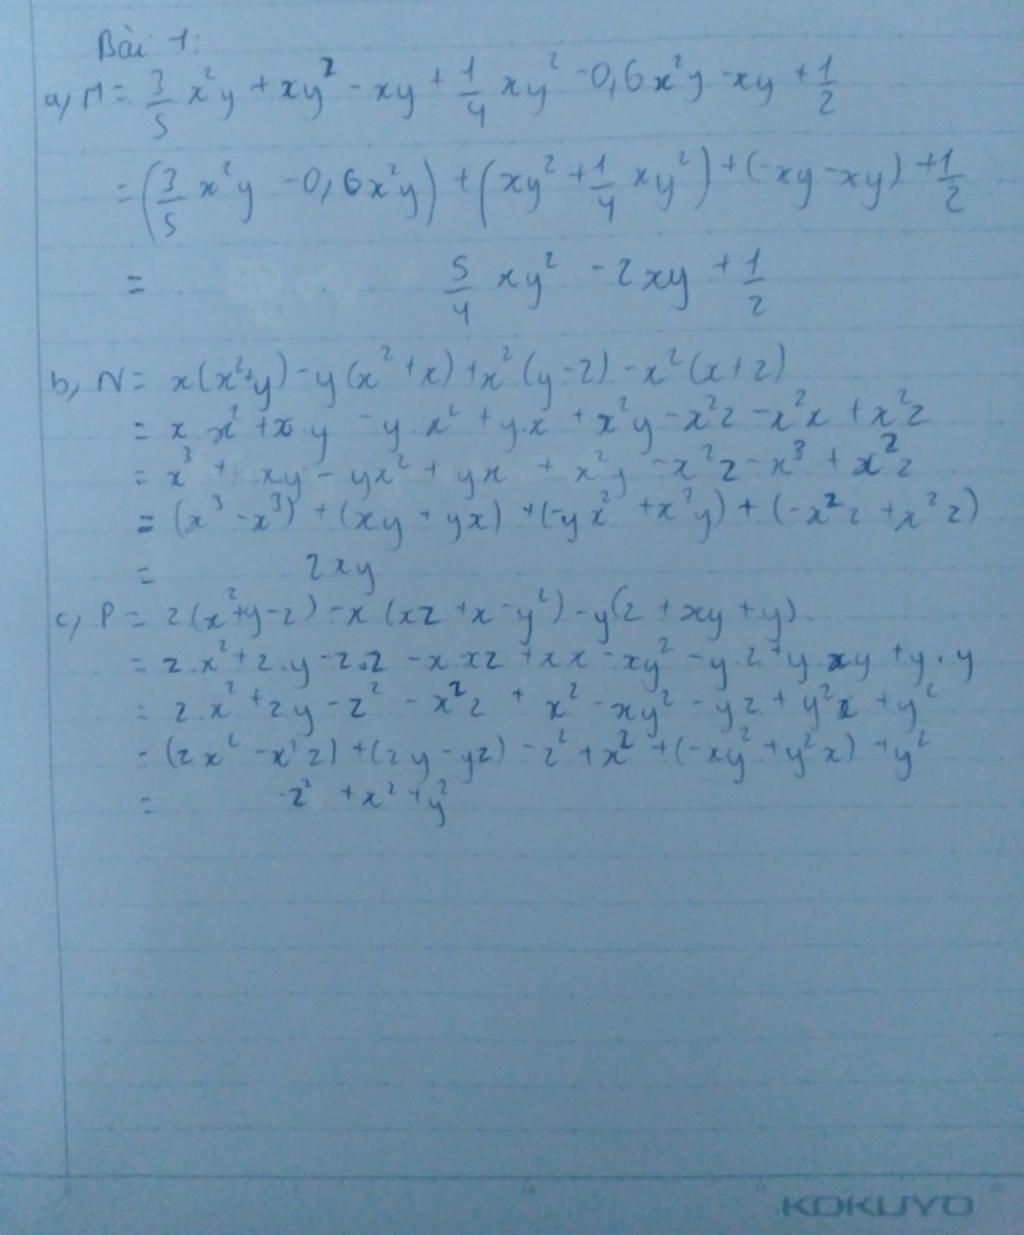 Bài 1:
a, M = 3/5 x²y + xy² - xy + 1/4 xy² - 0,6x²y - xy + 1/2
= (3/5 x²y - 0,6x²y) + (xy² + 1/4 xy²) + (-xy - xy) + 1/2
= 5/4 xy² - 2xy + 1/2
b, N = x(x²+y) - y(x²+x) + x²(y-z) - x²(x+z)
= x.x² + x.y - y.x² + y.x + x²y - x²z - x²x + x²z
= x³ + xy - yx² + yx + x²y - x²z - x³ + x²z
= (x³ - x³) + (xy + yx) + (-yx² + x²y) + (-x²z + x²z)
= 2xy
c, P = z(x²+y-z) - x(xz + x - y²) - y(z + xy + y).
= z.x² + z.y - z.z - x.xz + x.x - xy² - y.z + y.xy + y.y
= z.x² + zy - z² - x²z + x² - xy² - yz + y²x + y²
= (zx² - x²z) + (zy - yz) - z² + x² + (-xy² + y²x) + y²
= -z² + x² + y²
KOKUYO